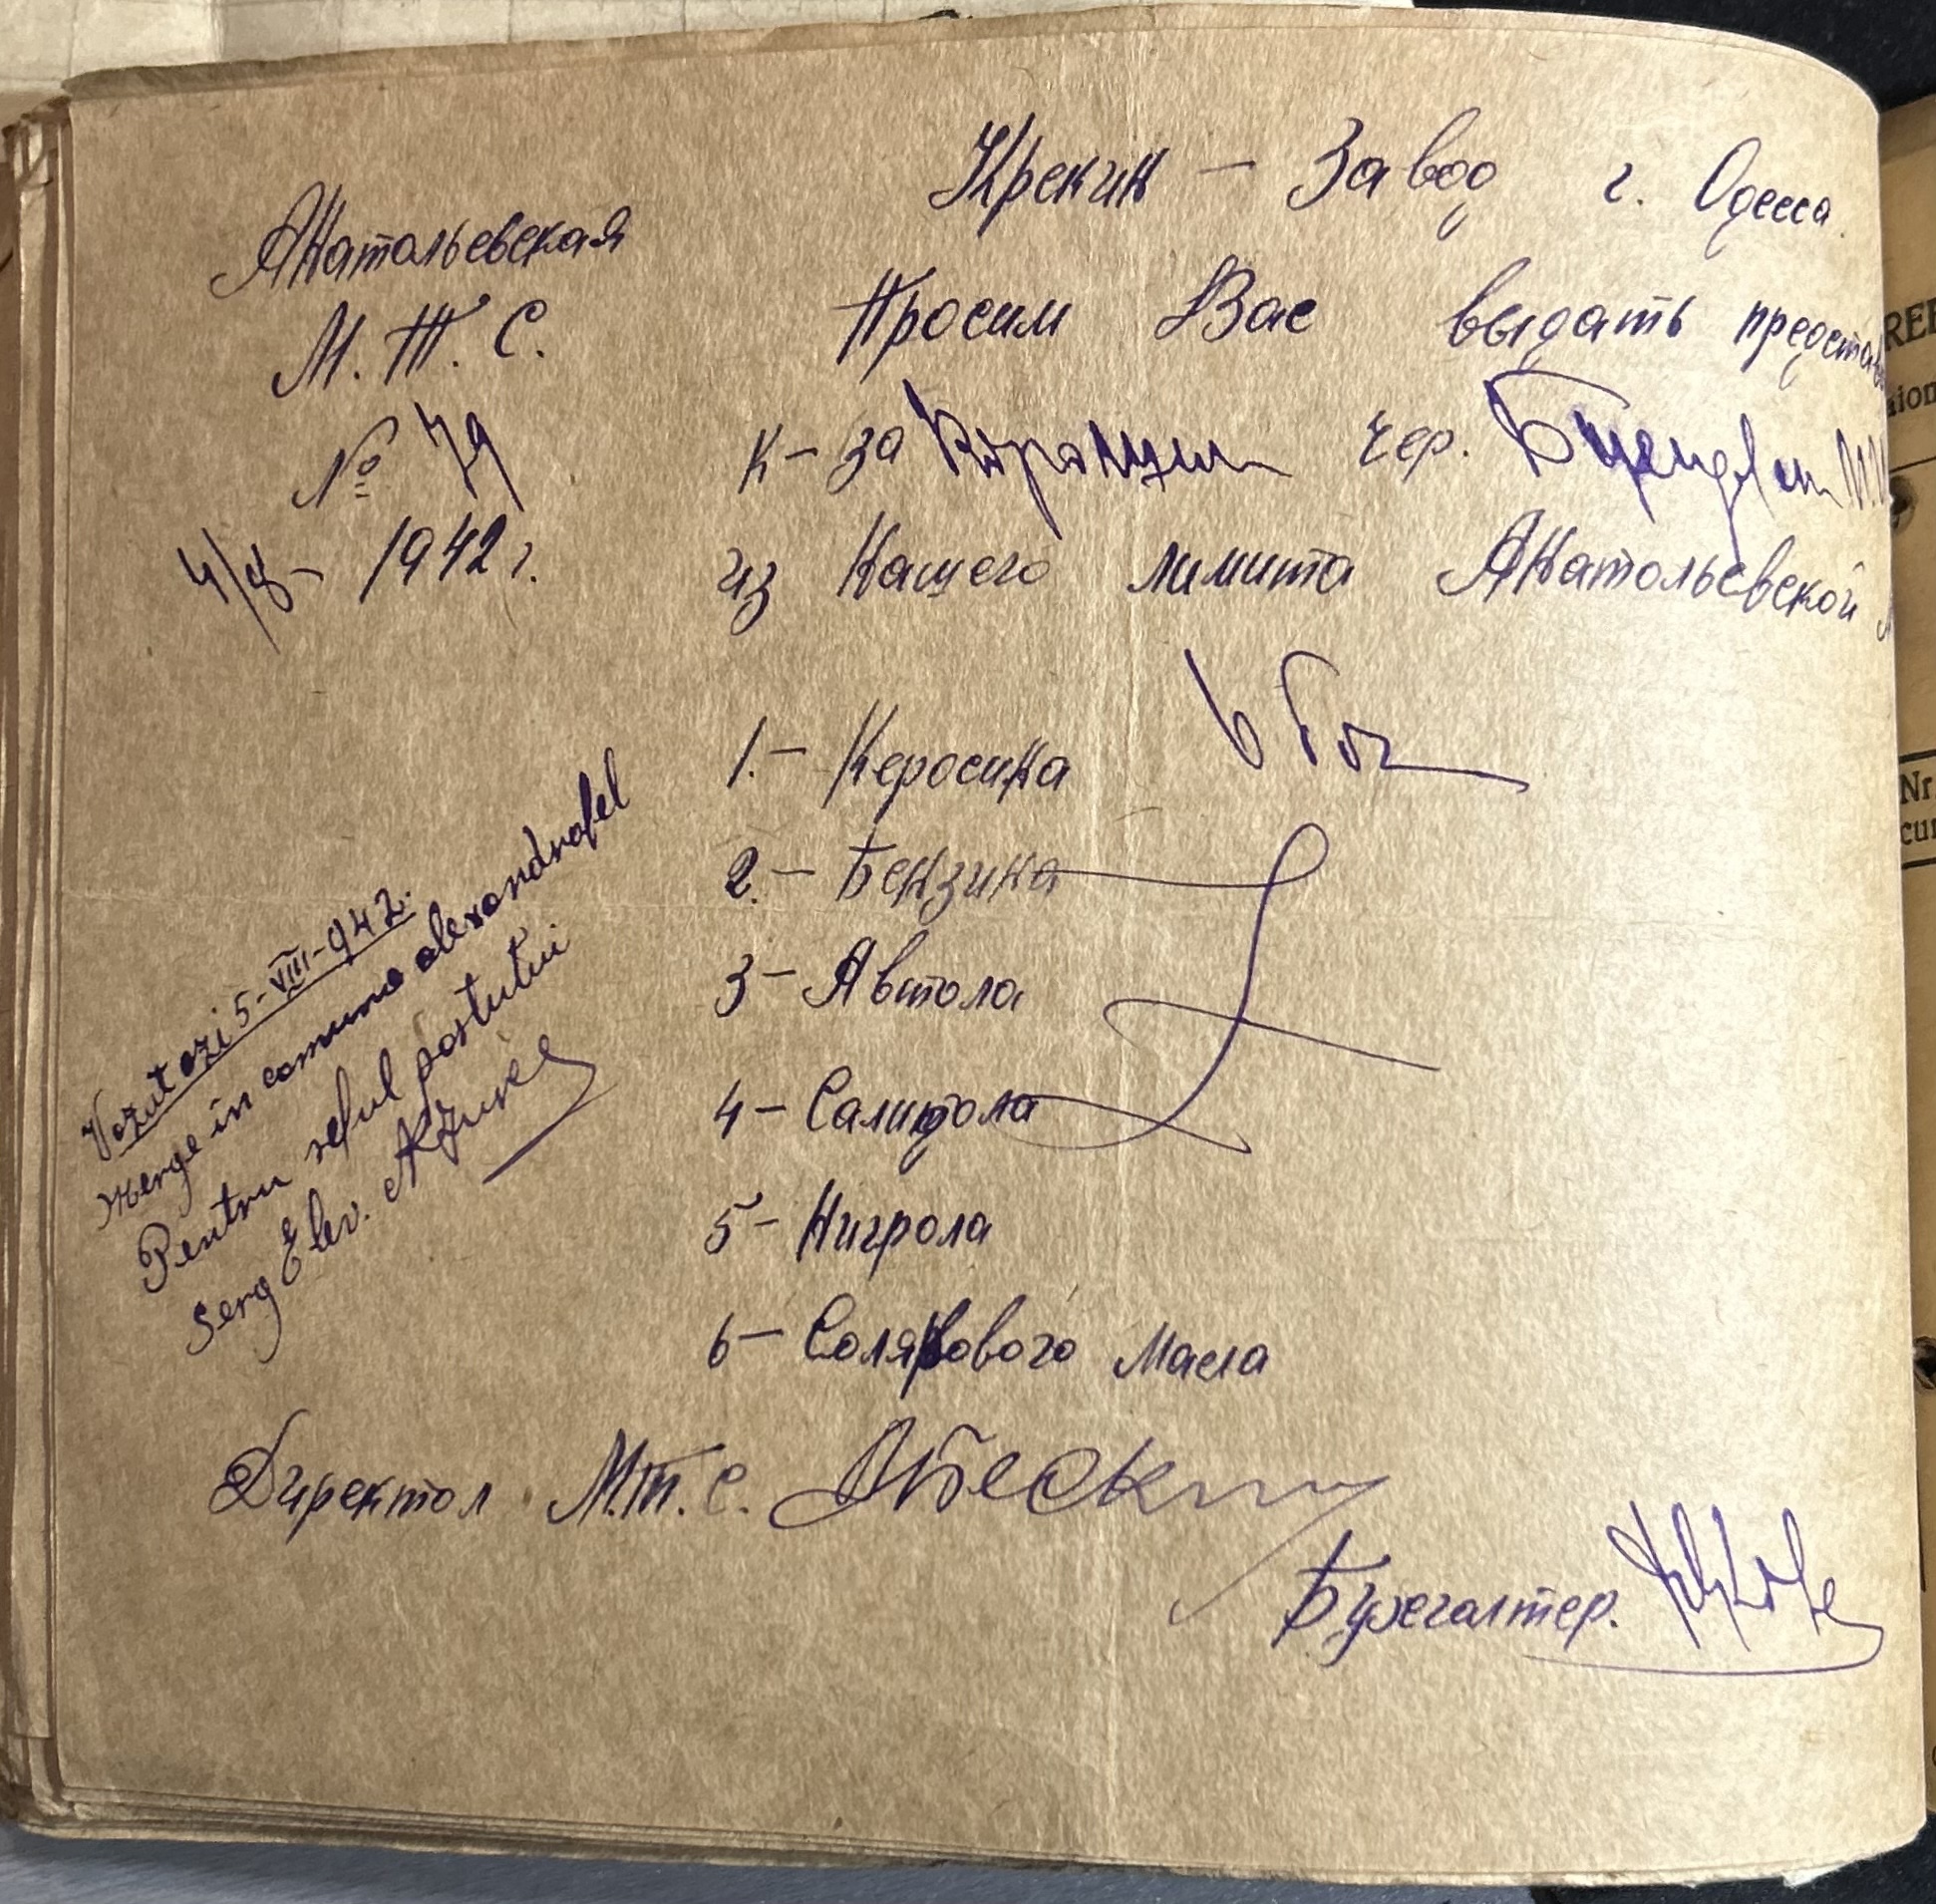 Анатольевская
М. Т. С.
№ 79
4/8 - 1942 г.
Крекин - Завод г. Одесса.
Просим Вас выдать представ
К-за чер.
из нашего лимита Анатольевской
1. - Керосина
2. - Бензина
3 - Автола
4 - Салидола
5 - Нигрола
6 - Солярового масла
Vazut azi 5-VIII-942.
merge in comuna alexandrofel
Pentru seful postului
Serg Elev.
Директол М.Т.С.
Бухгалтер.
Nr.